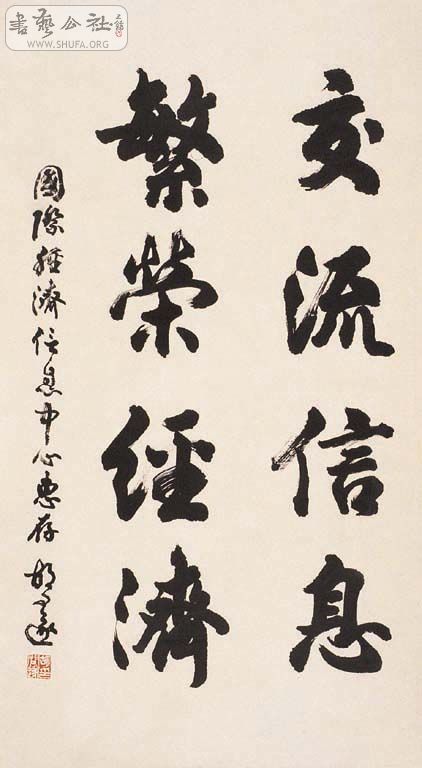 書藝公社
www.SHUFA.ORG
交流信息
繁榮經濟
國際經濟信息中心惠存 胡問遂